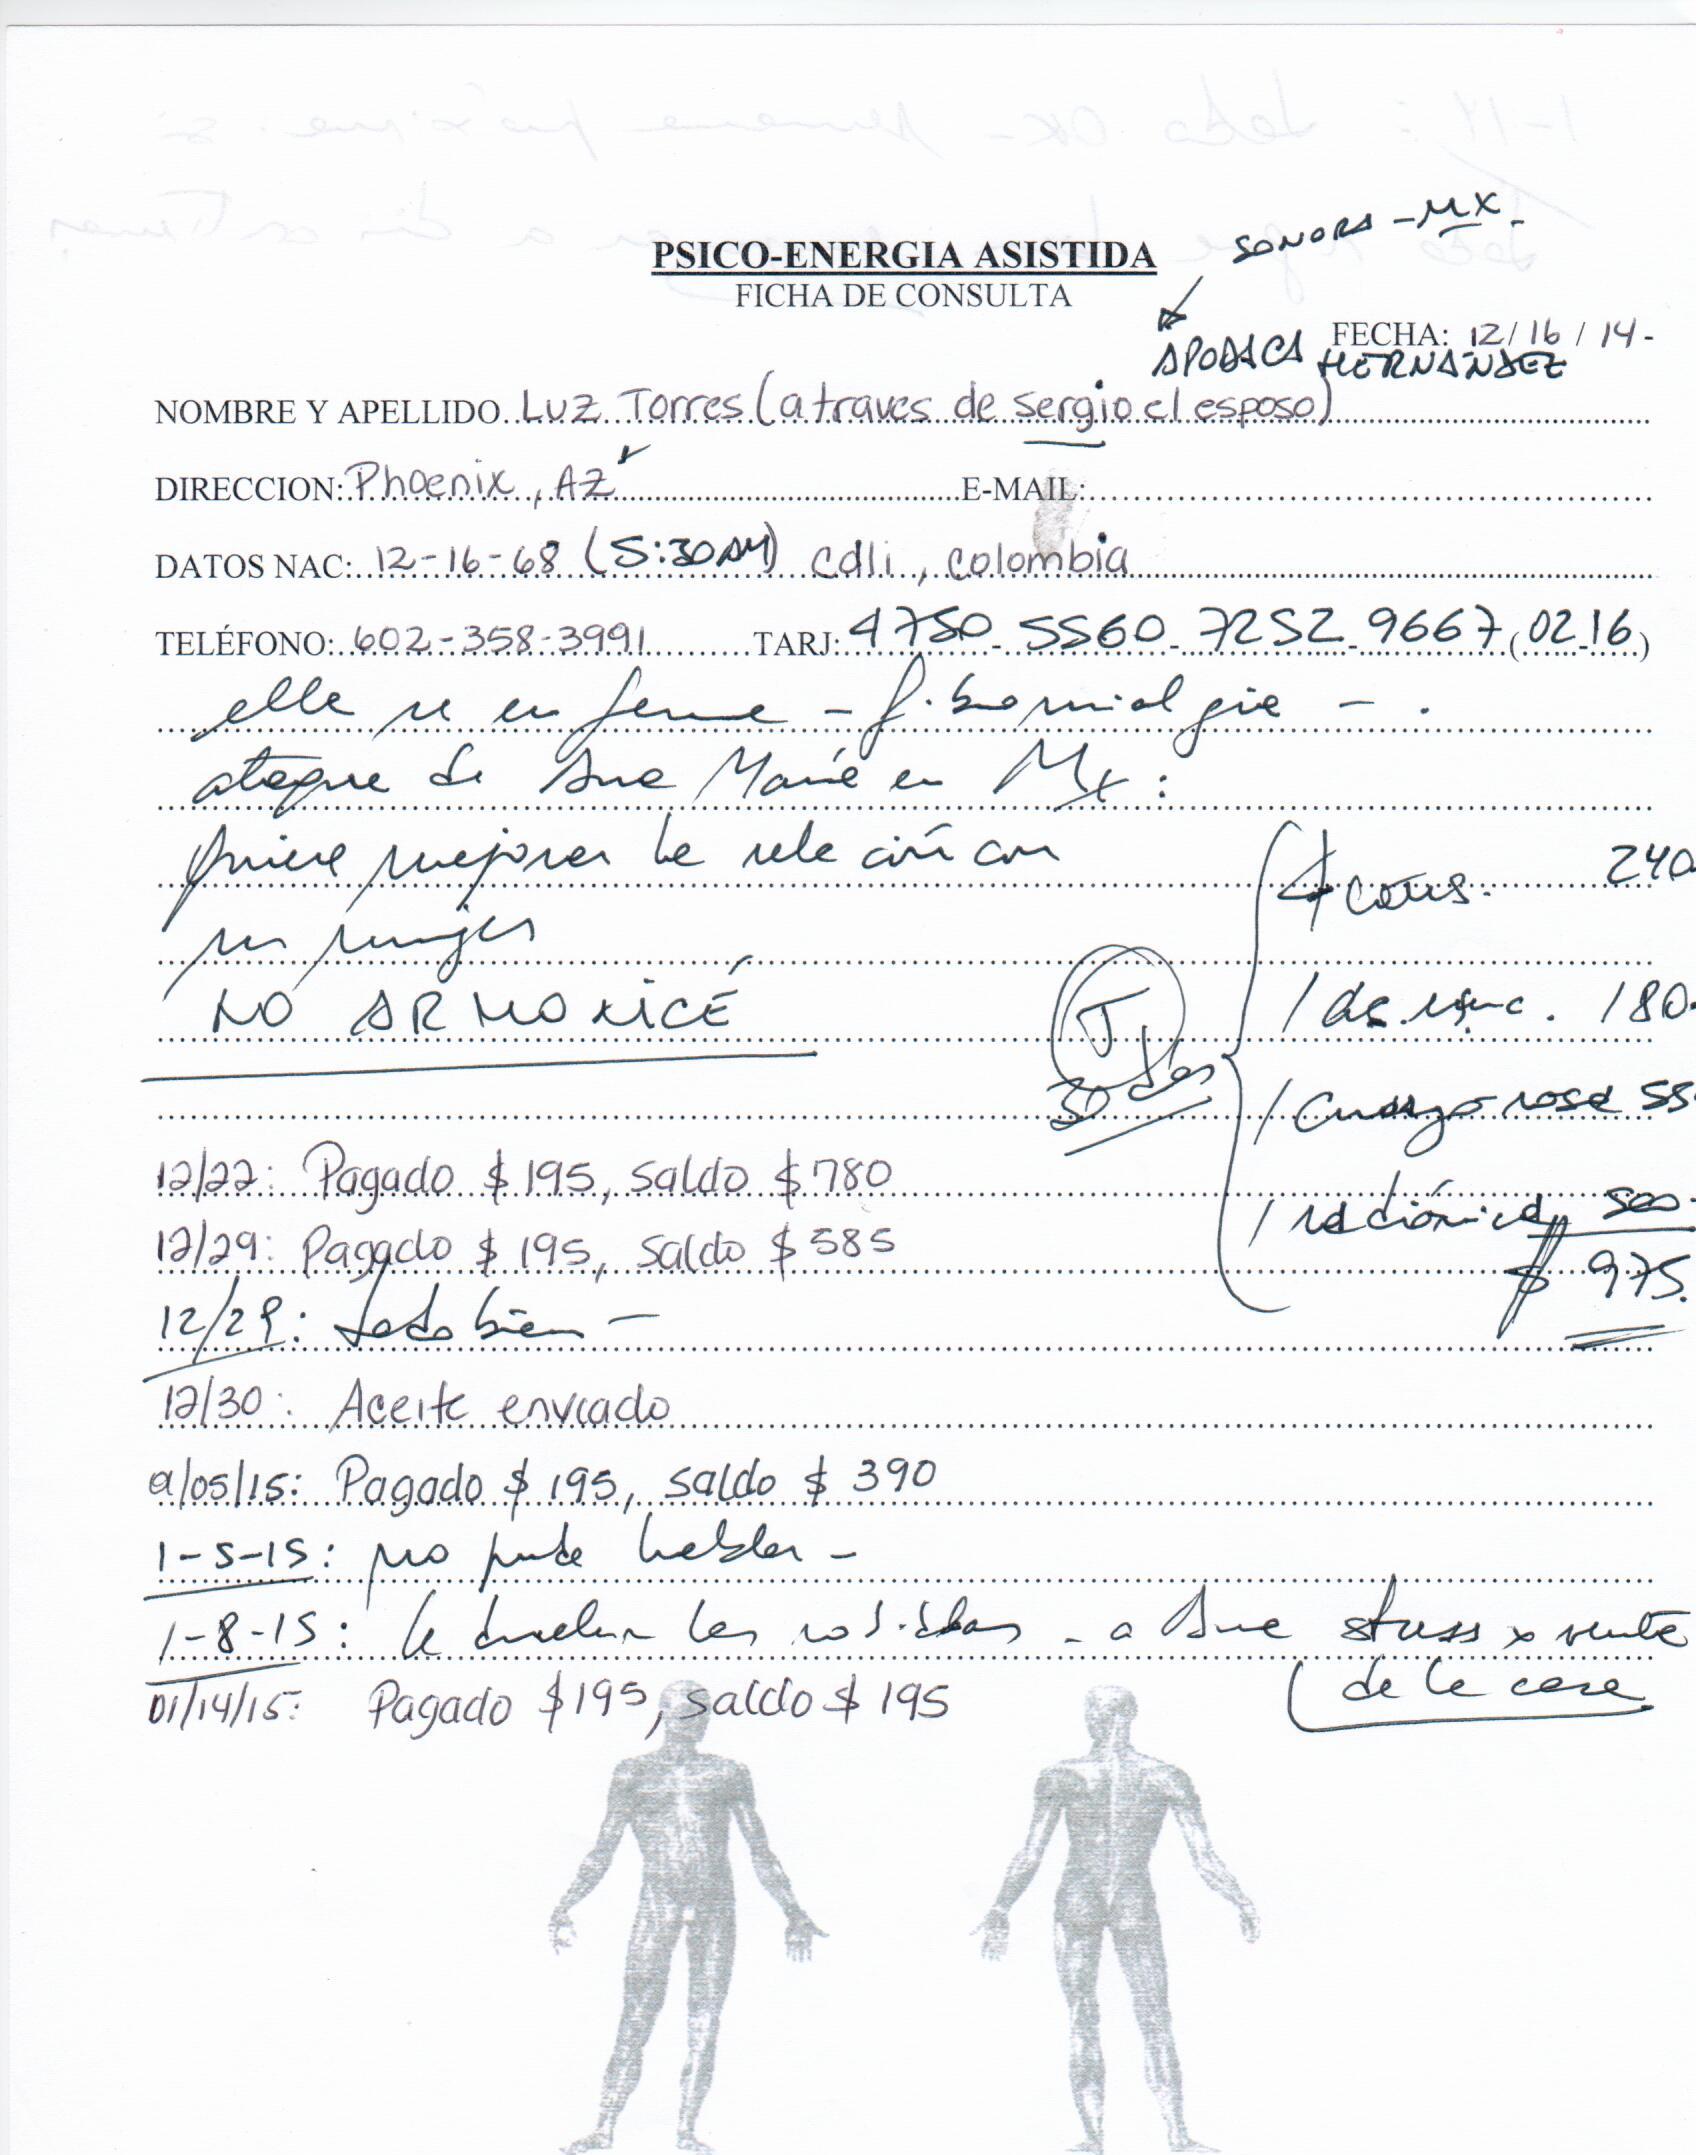 SONORA - MX -
PSICO-ENERGIA ASISTIDA
FICHA DE CONSULTA
FECHA: 12/16/14-
APODACA HERNÁNDEZ
NOMBRE Y APELLIDO Luz Torres (a traves de sergio el esposo)
DIRECCION: Phoenix, AZ E-MAIL:
DATOS NAC: 12-16-68 (5:30AM) cali, colombia
TELÉFONO: 602-358-3991 TARJ: 4750-5560-7252-9667 (02-16)
ella se enferma - fibromialgia -
ataque de Ana María en Mx:
quiere mejorar la relación con
su mujer
NO ARMONICÉ
4 cons. 240-
1 180-
1 cuarzo rosa 55-
1 radiónica 500-
$ 975.
J
30 días
12/22: Pagado $195, saldo $780
12/29: Pagado $195, saldo $585
12/29: todo bien -
12/30: Aceite enviado
/05/15: Pagado $195, saldo $390
1-5-15: no pude hablar -
1-8-15: le duelen las rodillas - a Ana stress x venta
de la casa
01/14/15: Pagado $195, saldo $195